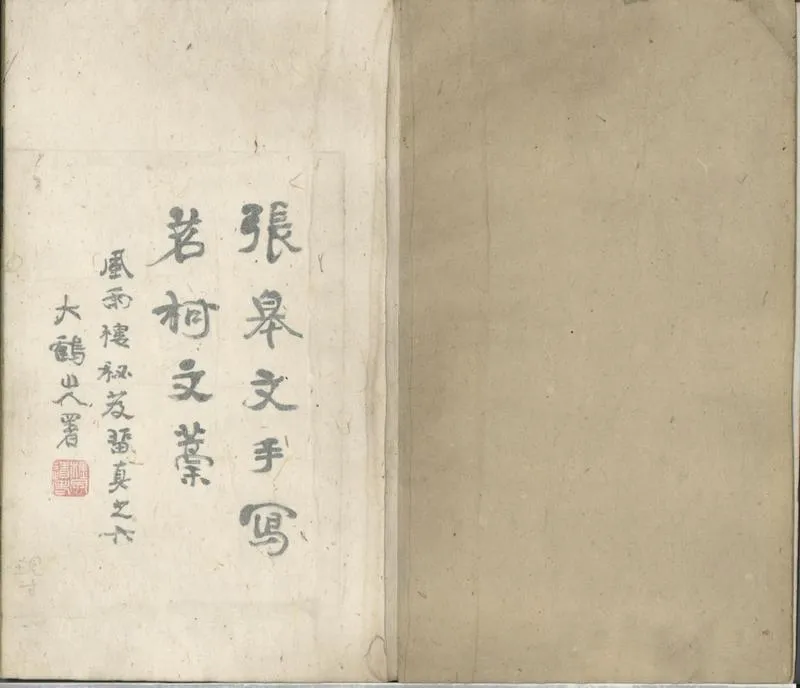 張皋文手寫
茗柯文藁
風雨樓秘笈留真之六
大鶴山人署